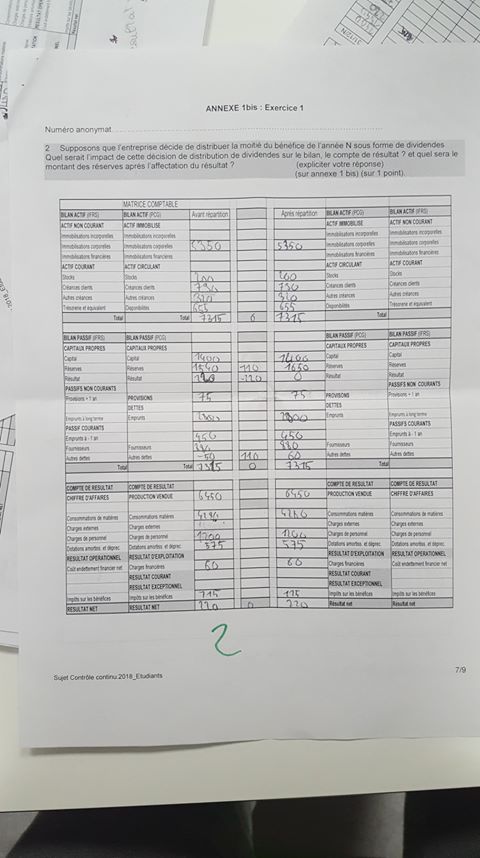 ANNEXE 1bis : Exercice 1
Numéro anonymat
2 Supposons que l'entreprise décide de distribuer la moitié du bénéfice de l'année N sous forme de dividendes
Quel serait l'impact de cette décision de distribution de dividendes sur le bilan, le compte de résultat ? et quel sera le
montant des réserves après l'affectation du résultat ? (expliciter votre réponse)
(sur annexe 1 bis) (sur 1 point).
MATRICE COMPTABLE
BILAN ACTIF (IFRS) BILAN ACTIF (PCG) Avant répartition Après répartition BILAN ACTIF (PCG) BILAN ACTIF (IFRS)
ACTIF NON COURANT ACTIF IMMOBILISE ACTIF IMMOBILISE ACTIF NON COURANT
Immobilisations incorporelles Immobilisations incorporelles Immobilisations incorporelles Immobilisations incorporelles
Immobilisations corporelles Immobilisations corporelles 5350 5350 Immobilisations corporelles Immobilisations corporelles
Immobilisations financières Immobilisations financières Immobilisations financières Immobilisations financières
ACTIF COURANT ACTIF CIRCULANT ACTIF CIRCULANT ACTIF COURANT
Stocks Stocks 200 Stocks Stocks
Créances clients Créances clients 790 Créances clients Créances clients
Autres créances Autres créances 320 Autres créances Autres créances
Trésorerie et equivalent Disponibilités 655 655 Disponibilités Trésorerie et equivalent
Total Total 7315 0 7315 Total Total
BILAN PASSIF (IFRS) BILAN PASSIF (PCG) BILAN PASSIF (PCG) BILAN PASSIF (IFRS)
CAPITAUX PROPRES CAPITAUX PROPRES CAPITAUX PROPRES CAPITAUX PROPRES
Capital Capital 1400 1400 Capital Capital
Réserves Réserves 1540 110 1650 Réserves Réserves
Résultat Résultat -220 0 Résultat Résultat
PASSIFS NON COURANTS PASSIFS NON COURANTS
Provisions + 1 an PROVISIONS 75 75 PROVISIONS Provisions + 1 an
DETTES DETTES
Emprunts à long terme Emprunts Emprunts Emprunts à long terme
PASSIF COURANTS PASSIFS COURANTS
Emprunts à - 1 an 450 450 Emprunts à - 1 an
Fournisseurs Fournisseurs 880 Fournisseurs Fournisseurs
Autres dettes Autres dettes -50 110 60 Autres dettes Autres dettes
Total Total 7315 0 7315 Total Total
COMPTE DE RESULTAT COMPTE DE RESULTAT COMPTE DE RESULTAT COMPTE DE RESULTAT
CHIFFRE D'AFFAIRES PRODUCTION VENDUE 6450 6450 PRODUCTION VENDUE CHIFFRE D'AFFAIRES
Consommations de matières Consommations matières 4280 4280 Consommations matières Consommations de matières
Charges externes Charges externes Charges externes Charges externes
Charges de personnel Charges de personnel 1200 1200 Charges de personnel Charges de personnel
Dotations amortiss. et déprec Dotations amortiss. et déprec 575 575 Dotations amortiss. et déprec Dotations amortiss. et déprec
RESULTAT OPERATIONNEL RESULTAT D'EXPLOITATION RESULTAT D'EXPLOITATION RESULTAT OPERATIONNEL
Coût endettement financier net Charges financières 60 60 Charges financières Coût endettement financier net
RESULTAT COURANT RESULTAT COURANT
RESULTAT EXCEPTIONNEL RESULTAT EXCEPTIONNEL
Impôts sur les bénéfices Impôts sur les bénéfices Impôts sur les bénéfices Impôts sur les bénéfices
RESULTAT NET RESULTAT NET 220 0 220 Résultat net Résultat net
2
Sujet Contrôle continu.2018_Etudiants
7/9